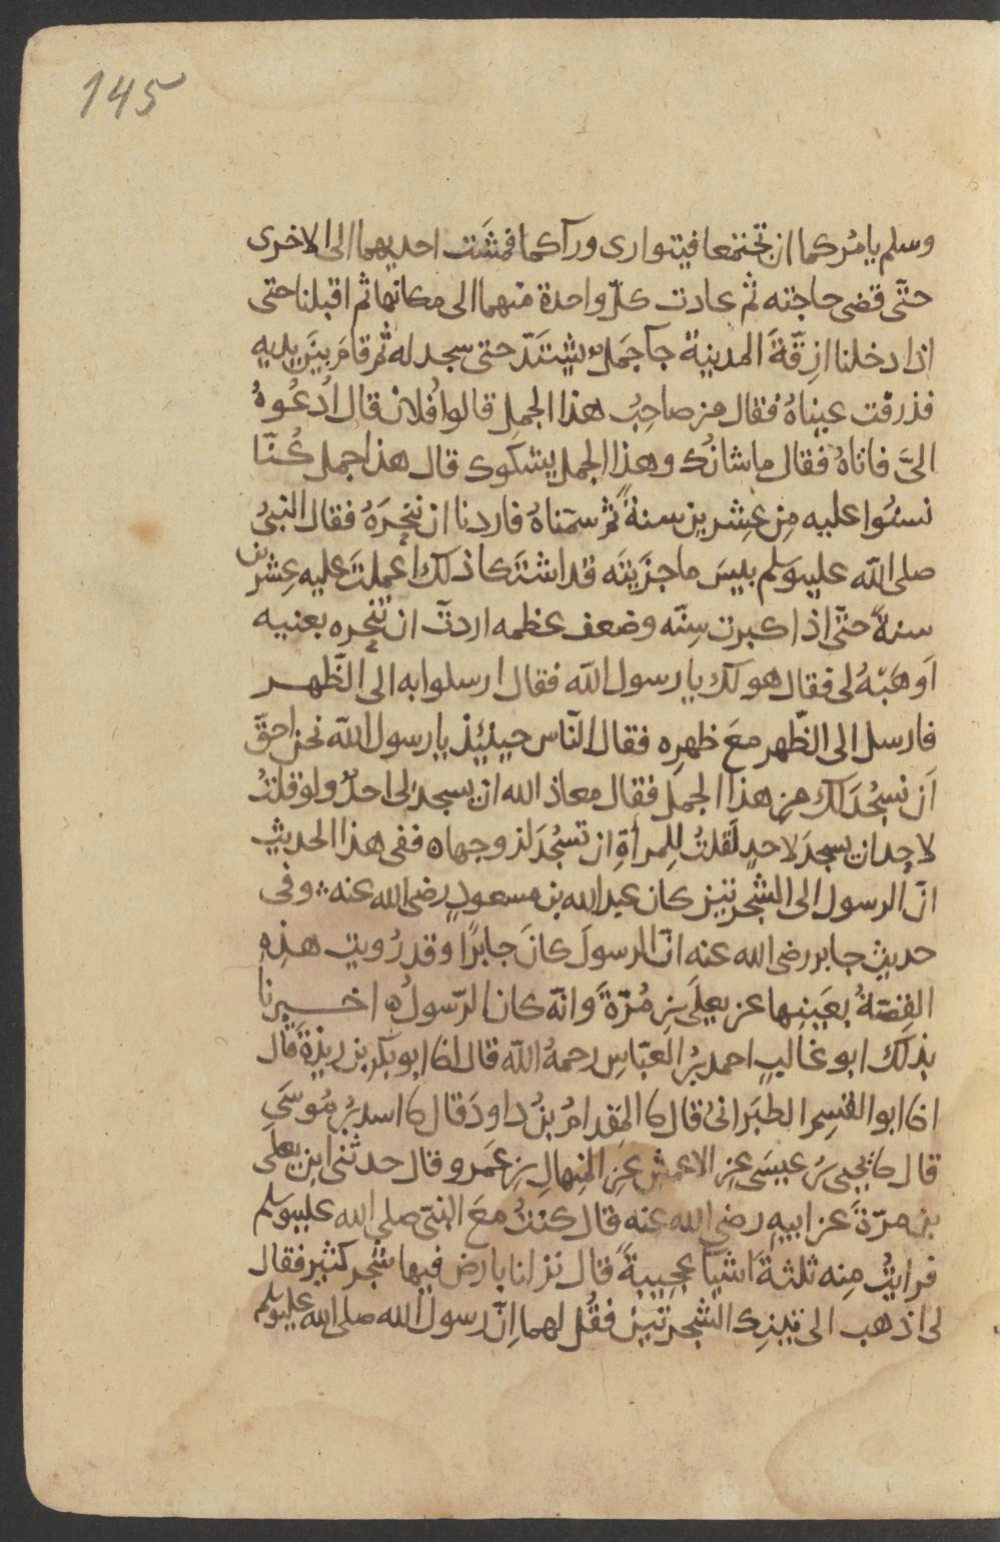 145
وسلم يامُركما ان تجتمعا فيتوارى ورآكما فمشَت احديهما الى الاخرى
حتّى قضى حاجته ثم عادت كلّ واحدة منهما الى مكانها ثم اقبلنا حتى
اذا دخلنا ازِقّةَ المدينة جآ جَمَلٌ يشتَدّ حتى سجد له ثم قامَ بينَ يديه
فذرفت عيناهُ فقال من صاحِبُ هذا الجمل قالوا فُلان قال اُدعُوهُ
الىَّ فاتاهُ فقال ما شانُك وهذا الجمل يشكوك قال هذا جمل كُنّا
نسنُوا عليه مِن عِشرين سنةً ثم سمّناهُ فاردنا ان ننحِرَهُ فقال النبىُّ
صلى الله عليه وسلم بيسَ ما جزَيتَه قد اشتكا ذلك اعمِلتَ عليه عِشرين
سنةً حتّى اذا كبرت سِنّه وضعف عظمه اردتَ ان تنحِره بعنيه
اَو هَبْهُ لى فقال هو لك يا رسول الله فقال ارسلوا به الى الظّهر
فارسل الى الظّهر معَ ظهرِه فقال النّاس حينئِذٍ يا رسول الله نحن احقّ
اَن نسجُدَ لك من هذا الجمل فقال معاذ الله ان يسجد لى احدٌ ولو قلتُ
لاحِد ان يسجدَ لاحدٍ لَقلتُ لِلمرأةِ ان تسجُدَ لزوجها ففى هذا الحديث
انّ الرسول الى الشجرتين كان عبد الله بن مسعودٍ رضى الله عنه وفى
حديث جابر رضى الله عنه انّ الرسولَ كانَ جابرًا وقد رُويت هذِهِ
القِصّةُ بعَينِها عن يعلَى بنِ مُرّةَ وانّه كان الرّسولُ ه اخبرنا
بذلك ابو غالبٍ احمد بنُ العبّاسِ رحمهُ الله قال انا ابو بكر بن ريذةَ قال
انا ابو القسِم الطبَرانىُ قال نا المِقدامُ بنُ داودَ قال نا اسد بنُ مُوسَى
قال نا يحيى بنُ عيسَى عنِ الاعمش عنِ المِنهالِ بنِ عَمرو قال حدثنى ابن يعلى
بن مرّةَ عن ابيه رضى الله عنه قال كنتُ معَ النبىّ صلى الله عليه وسلم
فرايتُ مِنه ثلثةَ اشيآ عجيبةً قال نزلنا بارض فيها شجر كثير فقال
لى اذهب الى تينِك الشجرتين فقُل لهما اِنّ رسول الله صلى الله عليه وسلم